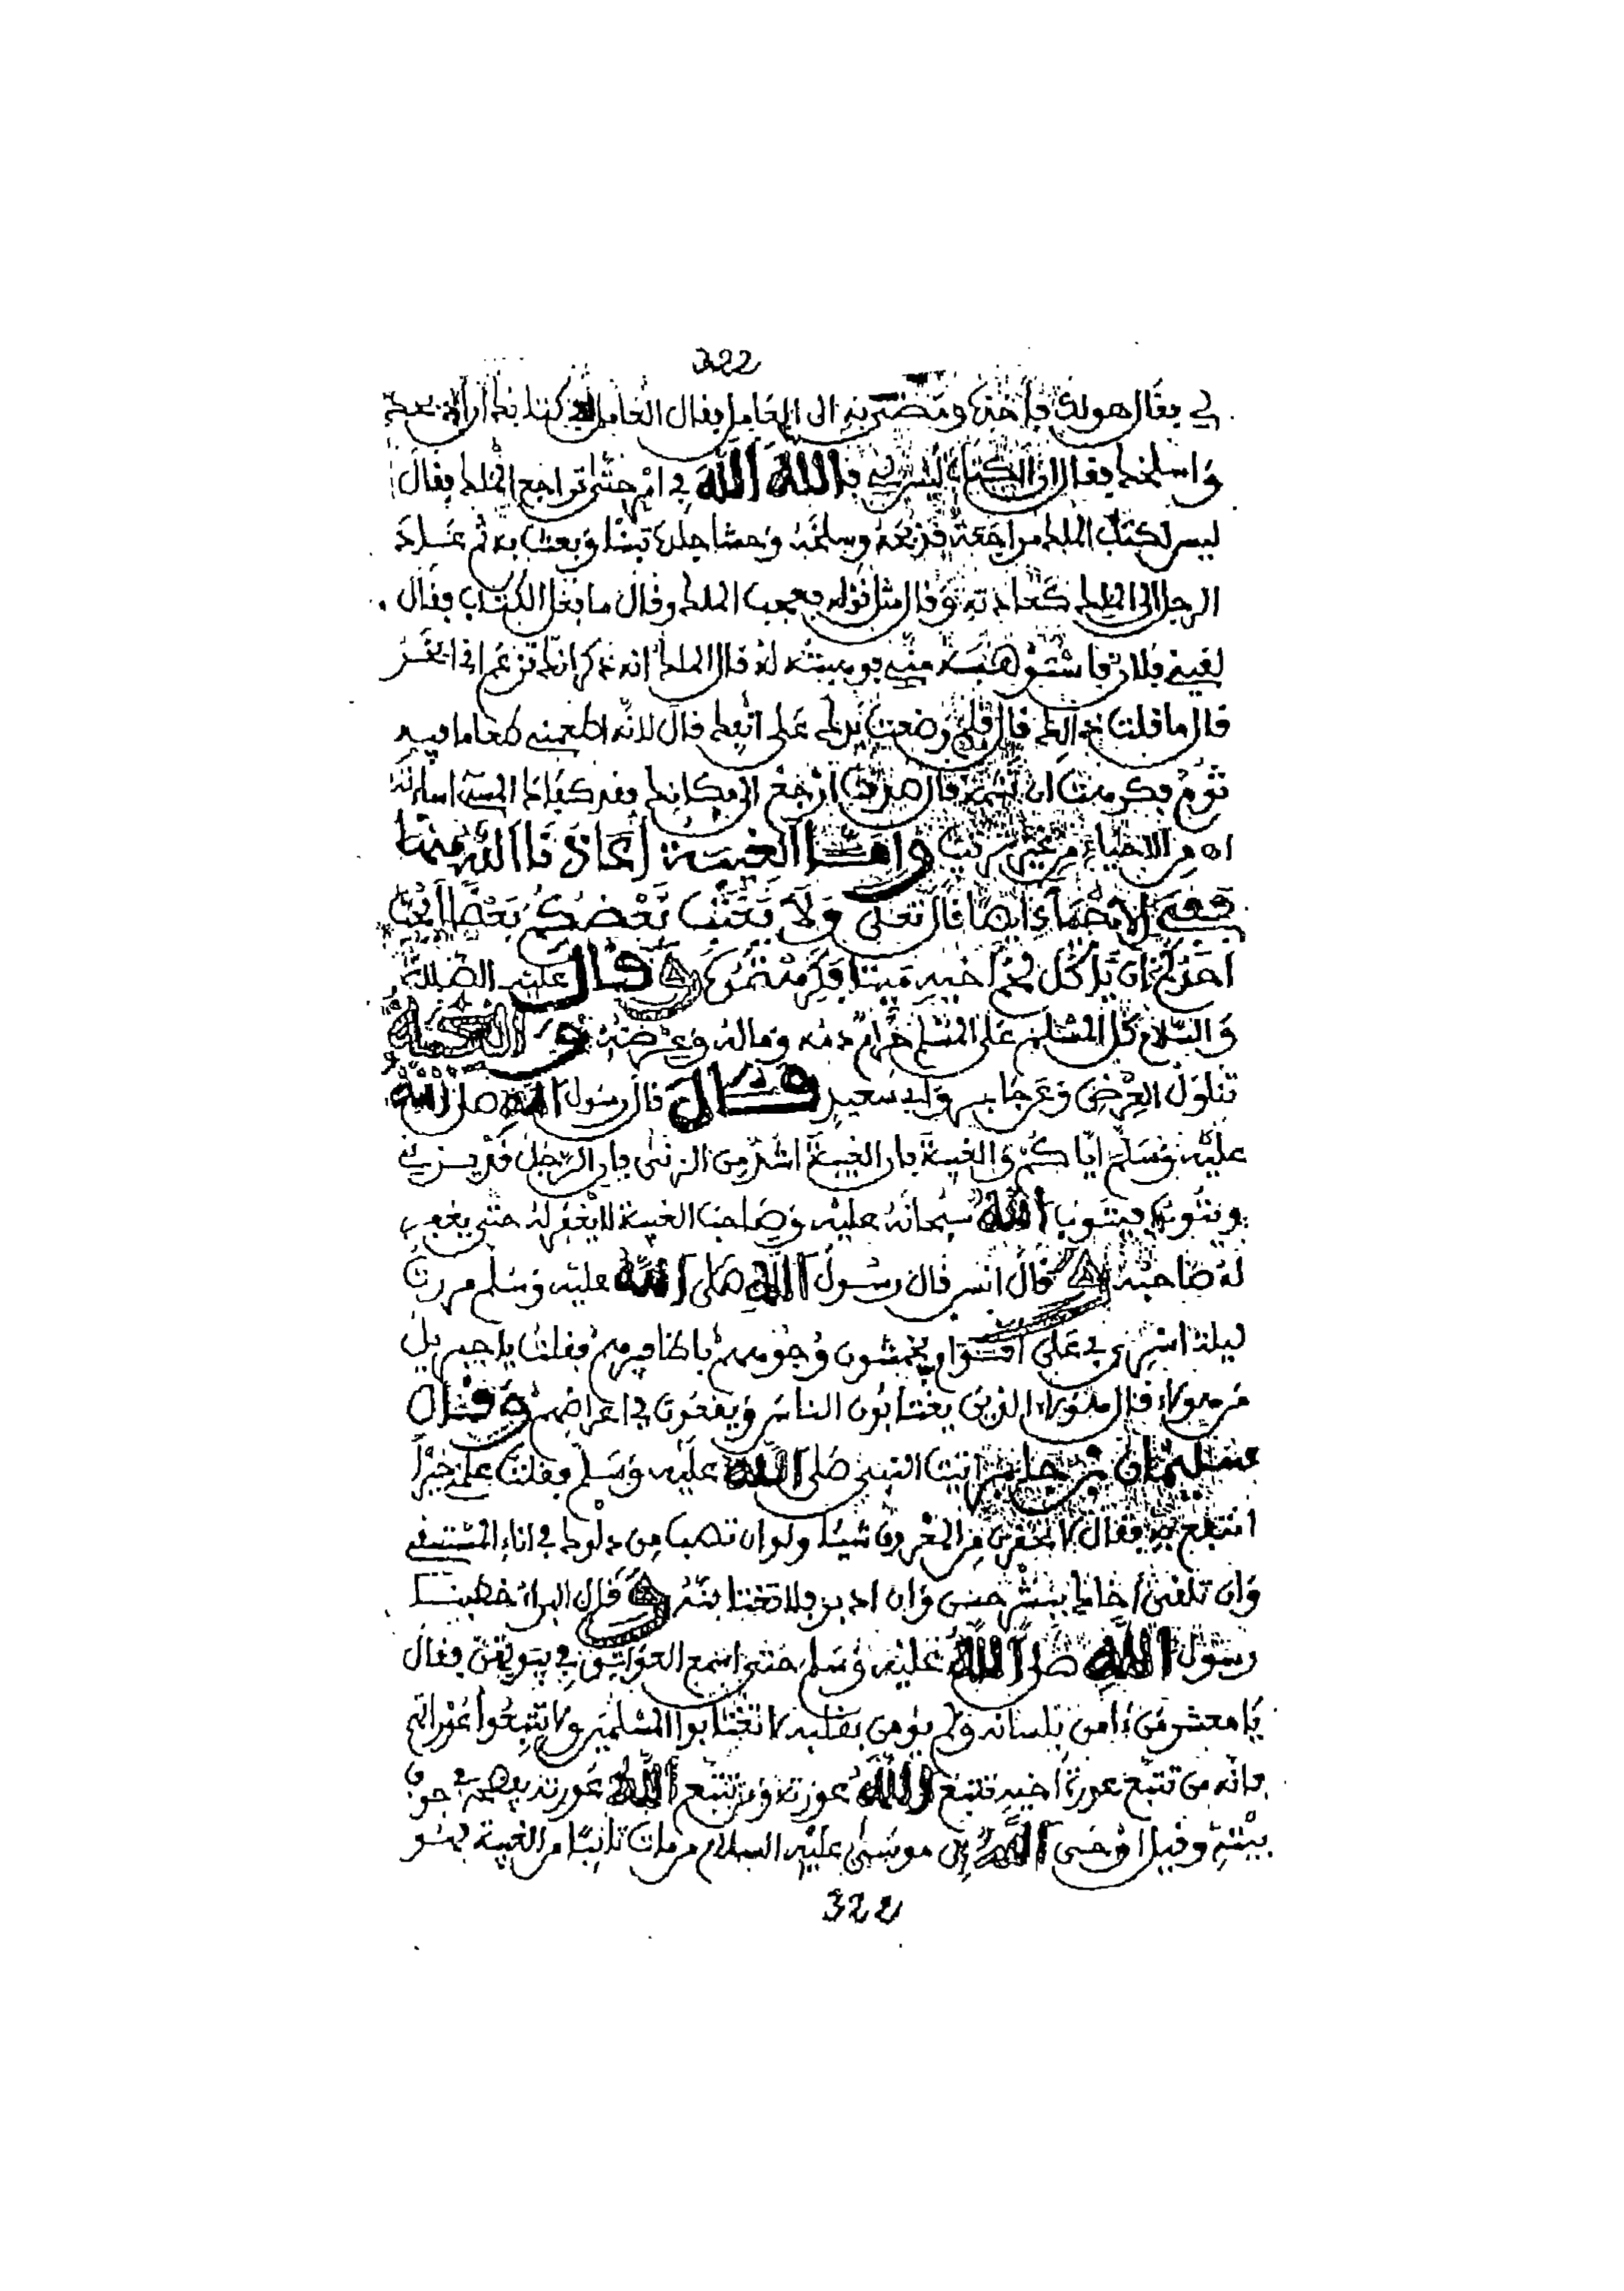 322
لي فقال هو لك فأخذه ومضى به الى العامل فقال العامل في كتابك ان اذبحك
واسلخك فقال ان الكتاب ليس لي فالله الله في امري حتى تراجع الملك فقال
ليس لكتاب الملك مراجعة فذبحه وسلخه وحشا جلده تبنا وبعث به ثم عاد
الرجل الى الملك كعادته وقال مثل قوله فعجب الملك وقال ما فعل الكتاب فقال
لقيني فلان فاستوهبه مني فوهبته له قال الملك انه ذكر انك تزعم اني ابخر
قال ما قلت ذالك قال فلم وضعت يدك على انفك قال لانه اطعمني طعاما فيه
ثوم فكرهت ان تشمه قال صدقت ارجع الى مكانك فقد كفاك المسيء اساءته
اه من الاحياء من غير ترتيب واما الغيبة اعاذنا الله منها
ففي الاحياء ايضا قال تعلى ولا يغتب بعضكم بعضا ايحب
احدكم ان ياكل لحم اخيه ميتا فكرهتموه قال عليه الصلاة
والسلام كل المسلم على المسلم حرام دمه وماله وعرضه والغيبة
تناول العرض وعن جابر وابي سعيد قال قال رسول الله صلى الله
عليه وسلم اياكم والغيبة فان الغيبة اشد من الزنى فان الرجل قد يزني
ويتوب فيتوب الله سبحانه عليه وصاحب الغيبة لا يغفر له حتى يغفر
له صاحبه قال انس قال رسول الله صلى الله عليه وسلم مررت
ليلة اسري بي على اقوام يخمشون وجوههم باظافيرهم فقلت يا جبريل
من هولاء قال هولاء الذين يغتابون الناس ويقعون في اعراضهم وقال
سليمان بن جابر اتيت النبي صلى الله عليه وسلم فقلت علمني خيرا
انتفع به فقال لا تحقرن من المعروف شيئا ولو ان تصب من دلوك في اناء المستسقي
وان تلقى اخاك ببشر حسن وان ادبر فلا تغتابنه قال البراء خطبنا
رسول الله صلى الله عليه وسلم حتى اسمع العواتق في بيوتهن فقال
يا معشر من ءامن بلسانه ولم يومن بقلبه لا تغتابوا المسلمين ولا تتبعوا عوراتهم
فانه من تتبع عورة اخيه تتبع الله عورته ومن تتبع الله عورته يفضحه في جوف
بيته وقيل اوحى الله الى موسى عليه السلام من مات تائبا من الغيبة فهو
322